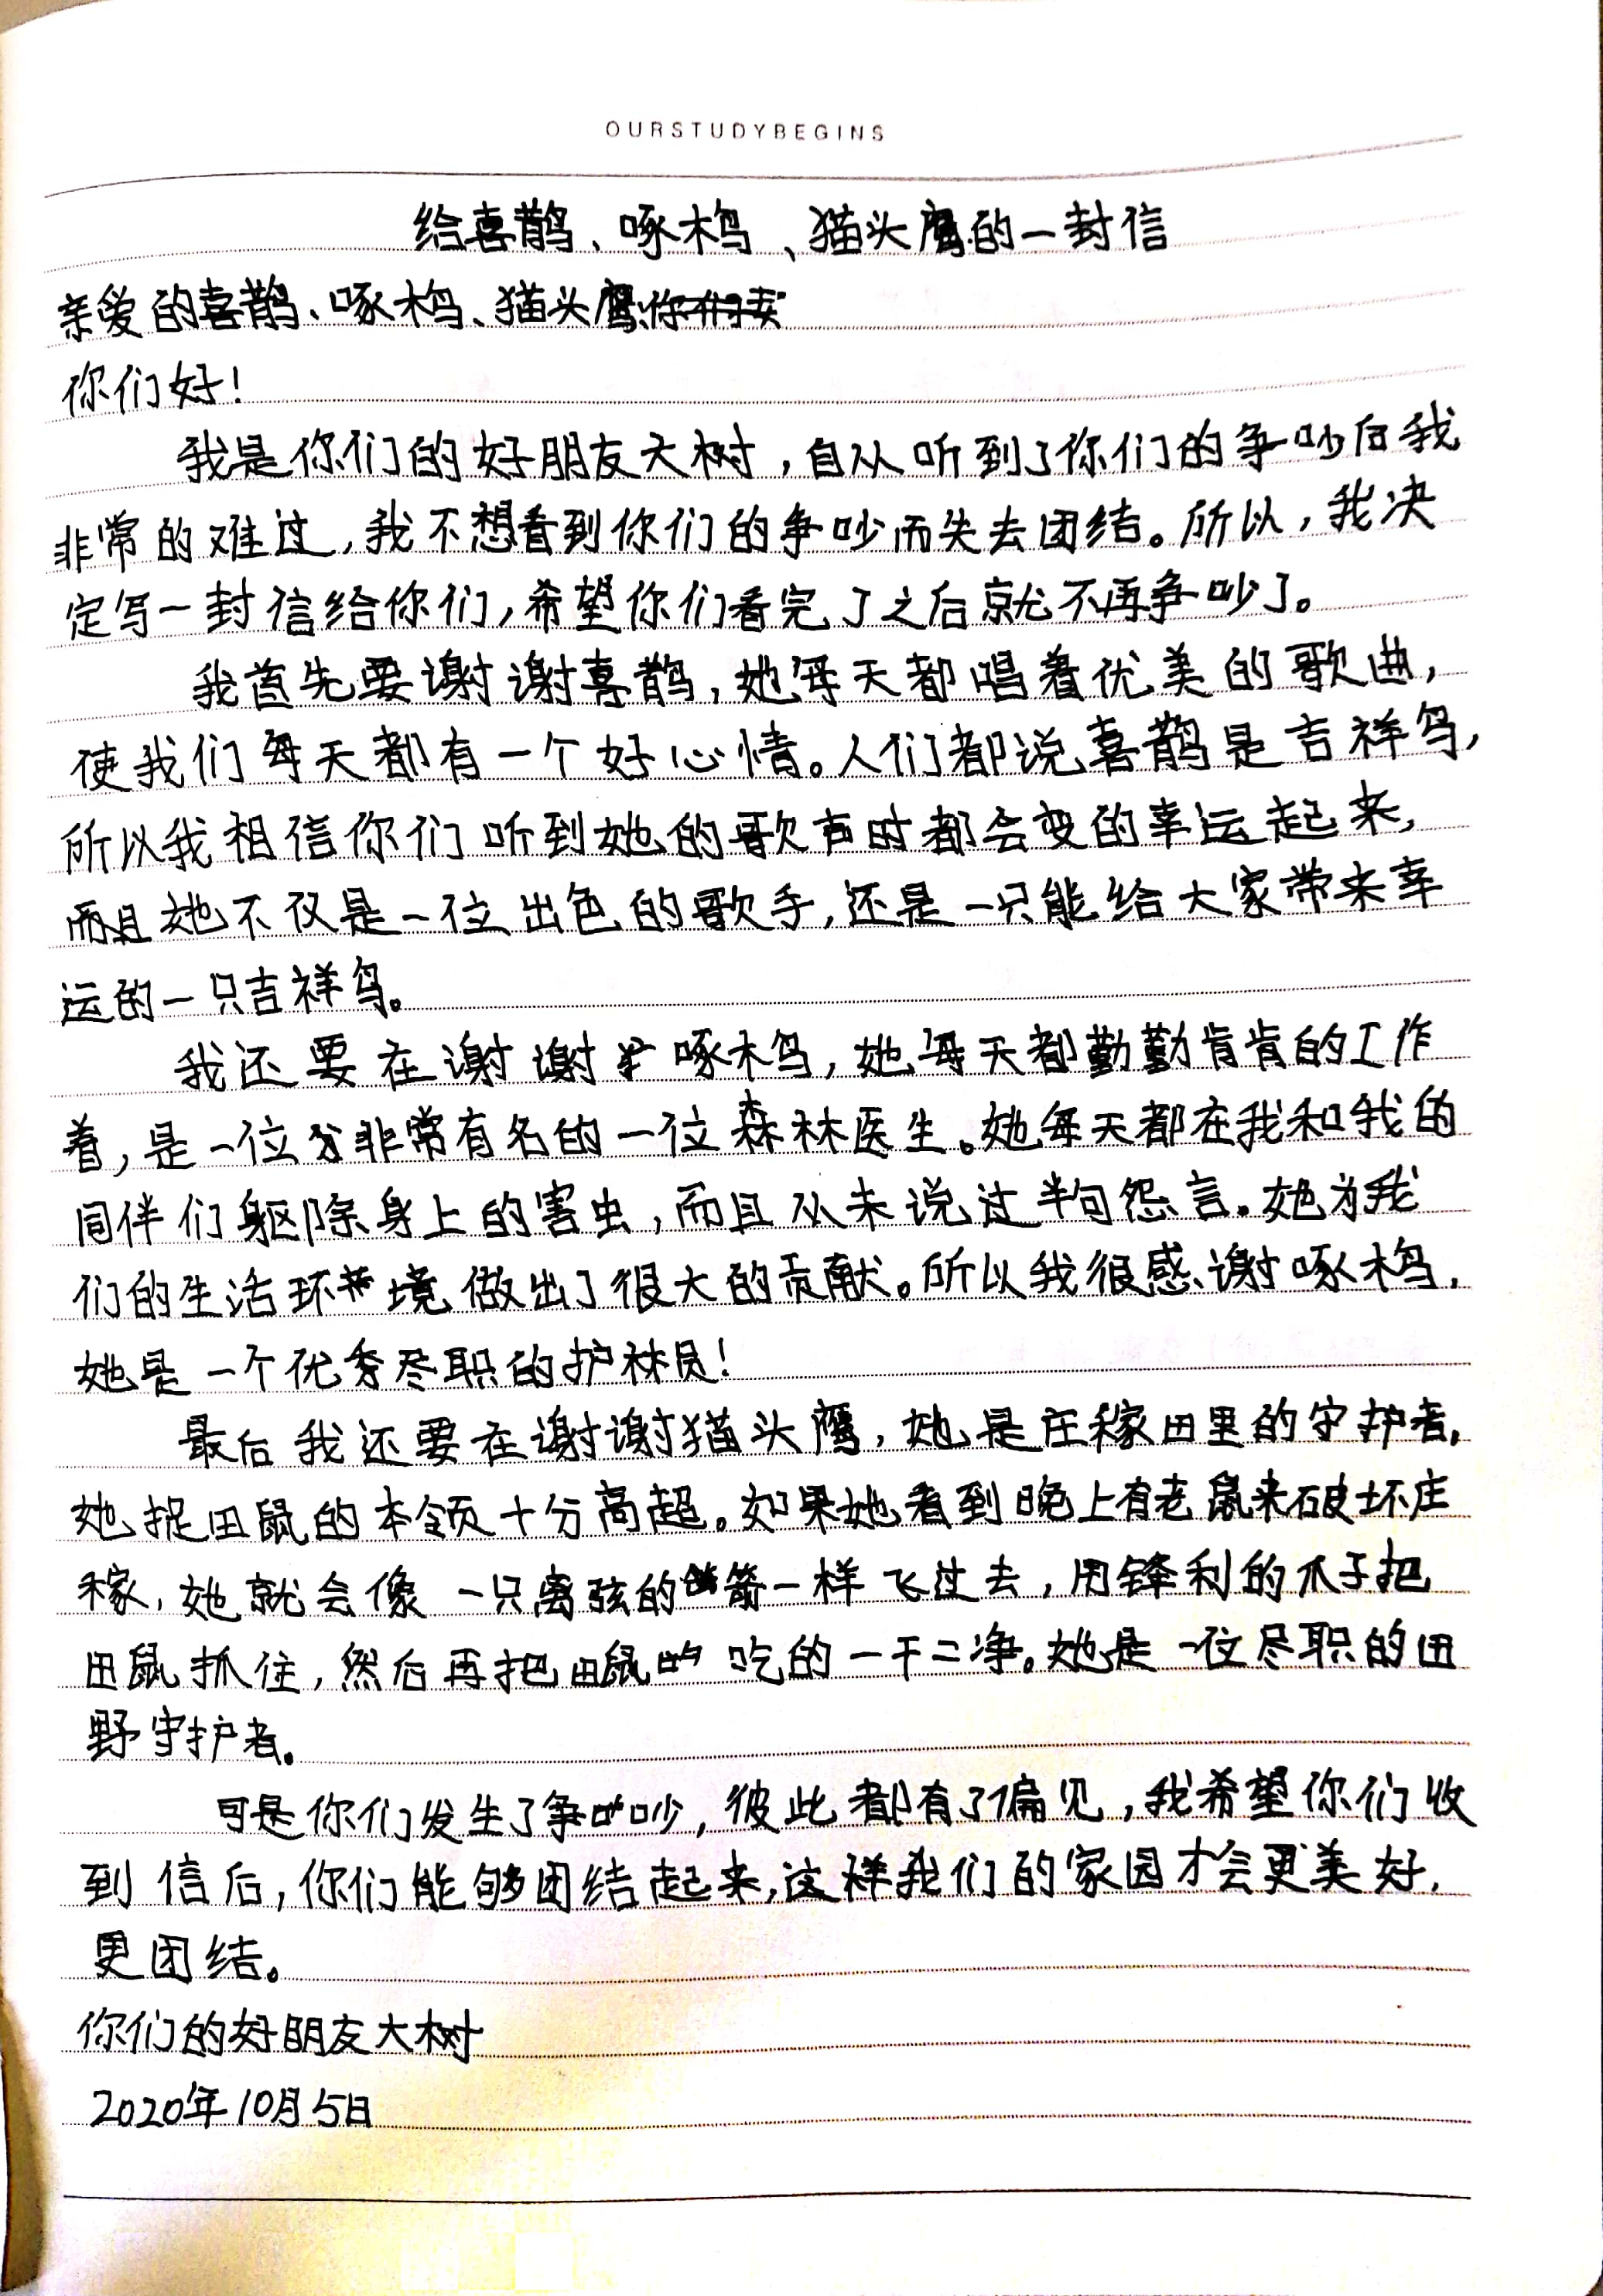 OURSTUDYBEGINS
给喜鹊、啄木鸟、猫头鹰的一封信
亲爱的喜鹊、啄木鸟、猫头鹰
你们好!
我是你们的好朋友大树,自从听到了你们的争吵后我
非常的难过,我不想看到你们的争吵而失去团结。所以,我决
定写一封信给你们,希望你们看完了之后就不再争吵了。
我首先要谢谢喜鹊,她每天都唱着优美的歌曲,
使我们每天都有一个好心情。人们都说喜鹊是吉祥鸟,
所以我相信你们听到她的歌声时都会变的幸运起来,
而且她不仅是一位出色的歌手,还是一只能给大家带来幸
运的一只吉祥鸟。
我还要在谢谢啄木鸟,她每天都勤勤肯肯的工作
着,是一位非常有名的一位森林医生。她每天都在我和我的
同伴们躯除身上的害虫,而且从未说过半句怨言。她为我
们的生活环境做出了很大的贡献。所以我很感谢啄木鸟.
她是一个优秀尽职的护林员!
最后我还要在谢谢猫头鹰,她是庄稼田里的守护者.
她捉田鼠的本领十分高超。如果她看到晚上有老鼠来破坏庄
稼,她就会像一只离弦的箭一样飞过去,用锋利的爪子把
田鼠抓住,然后再把田鼠吃的一干二净。她是一位尽职的田
野守护者。
可是你们发生了争吵,彼此都有了偏见,我希望你们收
到信后,你们能够团结起来,这样我们的家园才会更美好.
更团结。
你们的好朋友大树
2020年10月5日